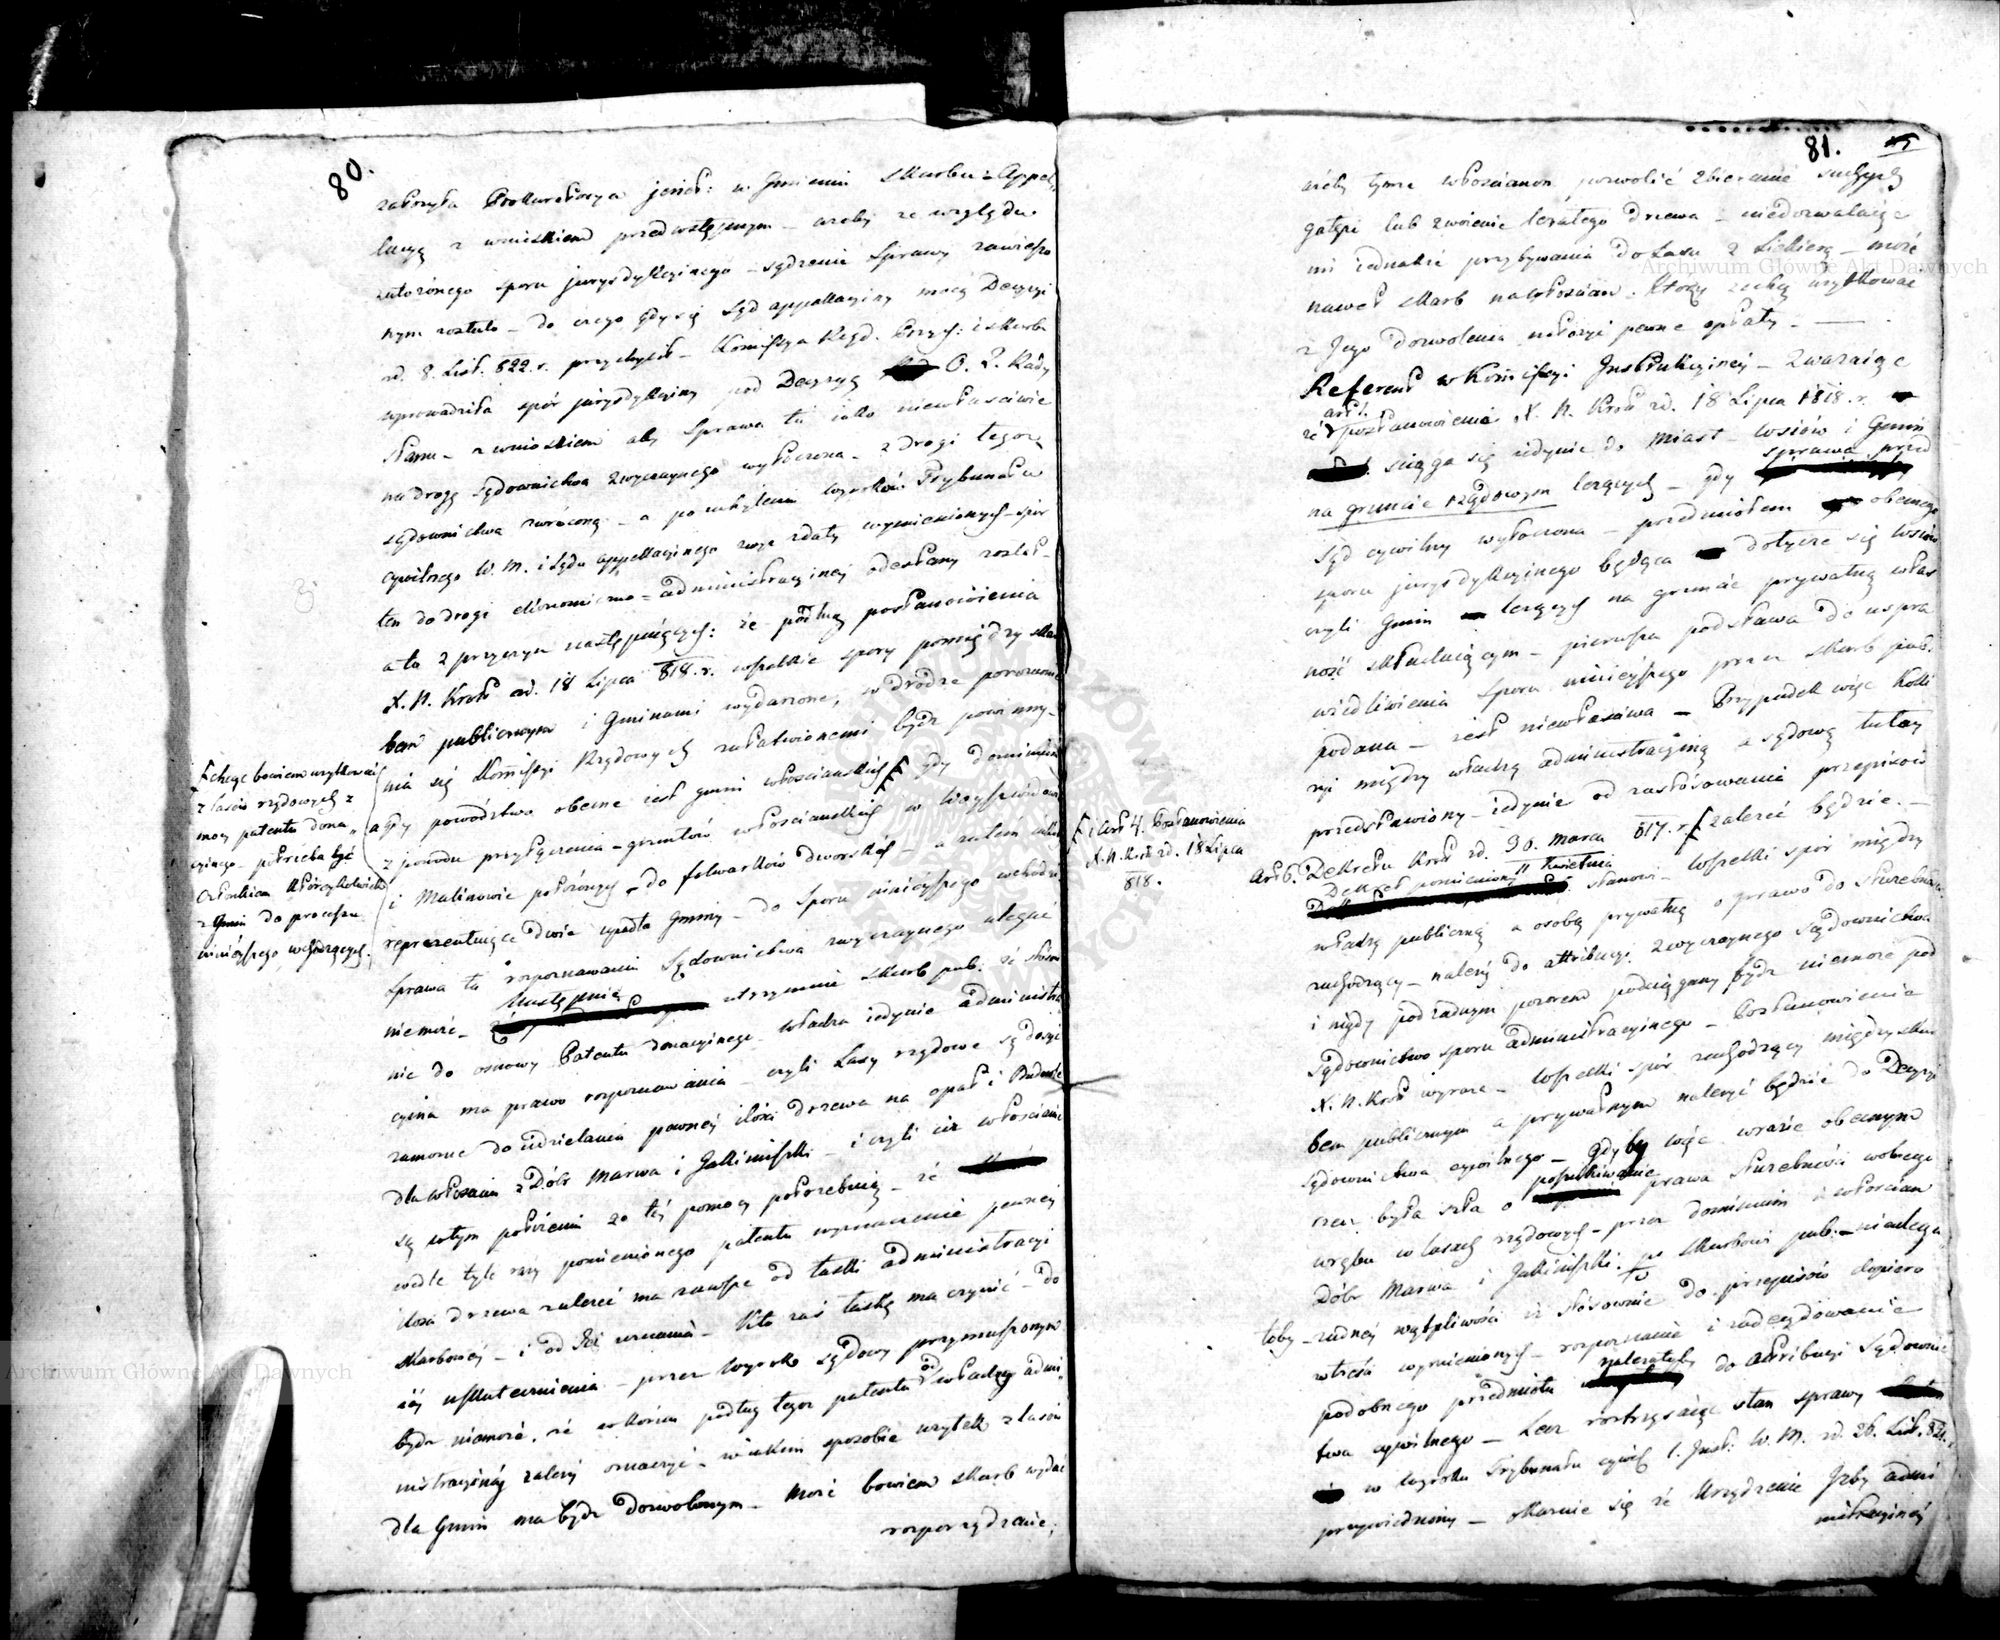 80.
założyła Prokuratorya jener: w Imieniu Skarbu = Appel,
lacyą z wnioskiem przedwstępnym – ażeby ze względu
założonego sporu jurysdykcyinego – sądzenie Sprawy zawieszo
nym zostało – do czego gdy się Sąd appellacyiny mocą Decyzyi
zd. 8. List. 822. r. przychylił – Kommissya Rząd. Przych: i Skarbu
wprowadziła spór jurysdykcyiny pod Decyzyą O. Z. Rady
Stanu – z wnioskiem aby Sprawa ta iako niewłaściwie
na drogę sądownictwa zwyczaynego wytoczona – z drogi tegoż
sądownictwa zwróconą – a po uchyleniu wyroków Trybunału
cywilnego W. M. i Sądu appellacyinego wyż z daty wymienionych – spór
ten do drogi ekonomiczno = administracyinej odesłany został –
a to z przyczyn następuiących: że podług postanowienia
X. N. Króla zd. 18 Lipca 818. r. wszelkie spory pomiędzy Skar
bem publicznym i Gminami wydarzone, w drodze porozumie
nia się Kommissyi Rządowych załatwionemi bydź powinny –
a gdy powództwo obecne iest gmin włościańskich [ gdy dominium
z powodu przyłączenia – gruntów włościańskich w
i Malinowie położonych – do folwarków dworskich – a zatem
reprezentuiące dwie upadłe Gminy – do Sporu ninieyszego wchodzi
Sprawa ta rozpoznawaniu Sądownictwa zwyczaynego ulegać
niemoże – Następnie utrzymuie Skarb pub: że stosow
nie do osnowy Patentu donacyinego – Władza iedynie administra
cyina ma prawo rozpoznawania – czyli Lasy rządowe są dosyć
zamożne do udzielania pewney ilości drzewa na opał i Budowle
dla włościan z Dóbr Marwa i Jakimiszki – i czyli ciż włościanie
są w tym położeniu że tey pomocy potrzebuią – że
wedle tyle razy pomienionego patentu wyznaczenie pewney
ilości drzewa zależeć ma zawsze od łaski administracyi
Skarbowey – i od Jei uznania – Kto zaś łaskę ma czynić – do
iey uskutecznienia – przez wyrok sądowy przymuszonym
bydź niemoże, że w końcu podług tegoż patentu od władzy admi„
nistracyiney zależy oznaczyć – w iakim sposobie użytek z lasów
dla Gmin ma bydź dozwolonym – Może bowiem Skarb wydać
rozporządzenie;
[ chcąc bowiem użytkować
z lasów rządowych z
mocy patentu dona„
cyinego – potrzeba być
Członkiem którzykolwiek
z Gmin do processu
ninieyszego wchodzących.
81.
ażeby tymże włościanom pozwolić zbieranie suchych
gałęzi lub zwożenie leżałego drzewa – niedozwalaiąc
im iednakże przybywania do Lasu z Siekierą – może
nawet Skarb na włościan, którzy zechcą użytkować
z Jego dozwolenia nałożyć pewne opłaty. —
Referent w Kommissyi Instrukcyiney – Zważaiąc
że art. 1. postanowienia X. N. Króla zd. 18 Lipca 1818. r.
ściąga się iedynie do Miast – Wsiów i Gmin
na gruncie rządowym leżących – gdy sprawa przed
Sąd cywilny wytoczona – przedmiotem obecnego
sporu jurysdykcyinego będąca dotycze się wsiów
czyli Gmin leżących na gruncie prywatną włas
ność składaiącym – pierwsza podstawa do uspra
wiedliwienia sporu ninieyszego przez Skarb pub.
podana – iest niewłaściwa – Przypadek więc Kolli
zyi między władzą administracyiną a sądową tutay
przedstawiony – iedynie od zastosowania przepisów
Art 6. Dekretu Króla zd. 30. Marca 817. r. [ zależeć będzie. –
Dekret pomieniony 11 Kwietnia stanowi – Wszelki spór między
władzą publiczną a osobą prywatną o prawo do służebności
zachodzący – należy do attribucyi zwyczaynego Sądownictwa
i nigdy pod żadnym pozorem podciągany bydź niemoże pod
Sądownictwo sporu administracyinego – Postanowienie
X. N. Króla wyraża – Wszelki spór zachodzący między Skar
bem publicznym a prywatnym należeć będzie do Decyzyi
Sądownictwa cywilnego – Gdyby więc w razie obecnym
rzecz była szła o poszukiwanie prawa służebności wolnego
wrębu w lasach rządowych – przez dominium i włościan
Dóbr Marwa i Jakimiszki po Skarbowi pub. – nieulega
łoby – żadney wątpliwości iż stosownie do przepisów dopiero
w treści wymienionych – rozpoznanie i zadecydowanie
podobnego przedmiotu należałoby do attribucyi Sądownic
twa cywilnego – Lecz roztrząsaiąc stan sprawy
w wyroku Trybunału cywil. 1. Inst: W. M. zd. 26. List. 821.
przywiedziony – okazuie się że Urządzenie Izby admi
nistracyiney
[ i Art 4. Postanowienia
X. N. Króla zd. 18 Lipca
818.